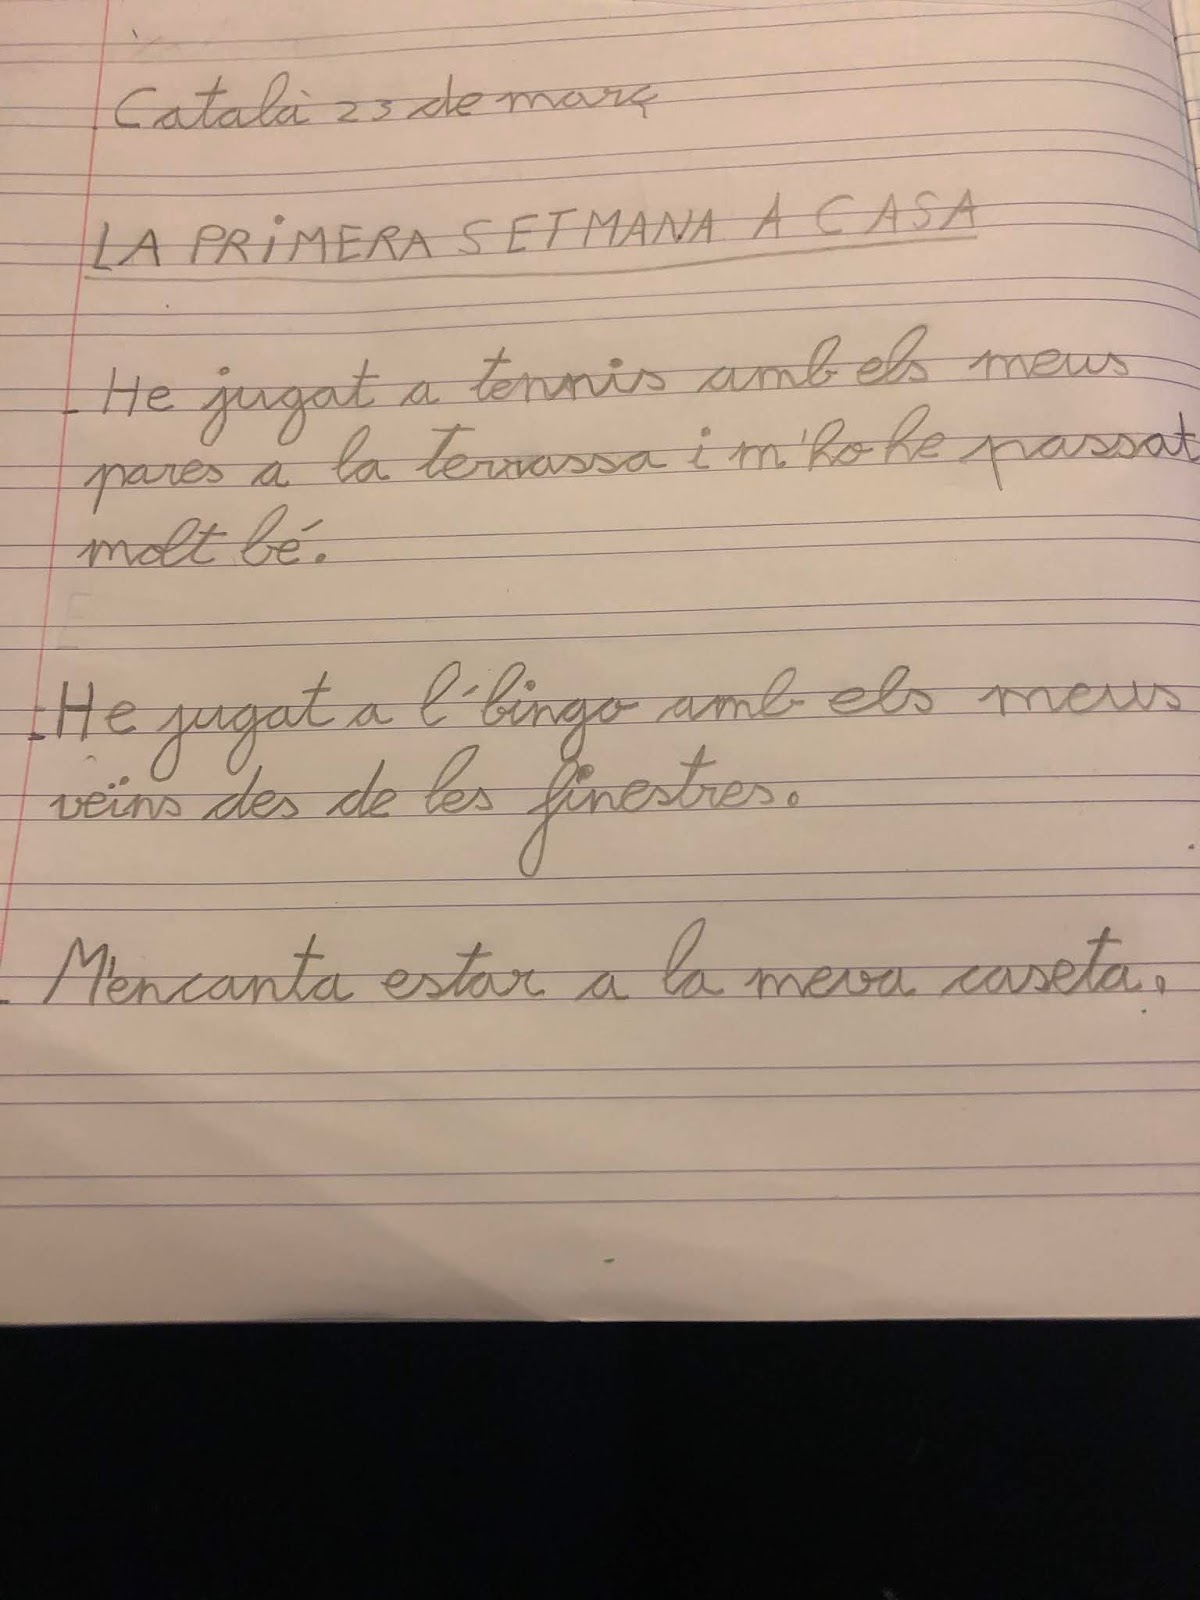 Català 23 de març
LA PRIMERA SETMANA A CASA
- He jugat a tennis amb els meus
pares a la terrassa i m'ho he passat
molt bé.
- He jugat a l'bingo amb els meus
veïns des de les finestres.
- M'encanta estar a la meva caseta.